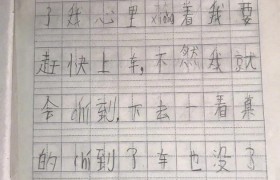 了我心里着我要
赶快上车,不然我就
会chi到,下去一看真
的chi到了车也没了